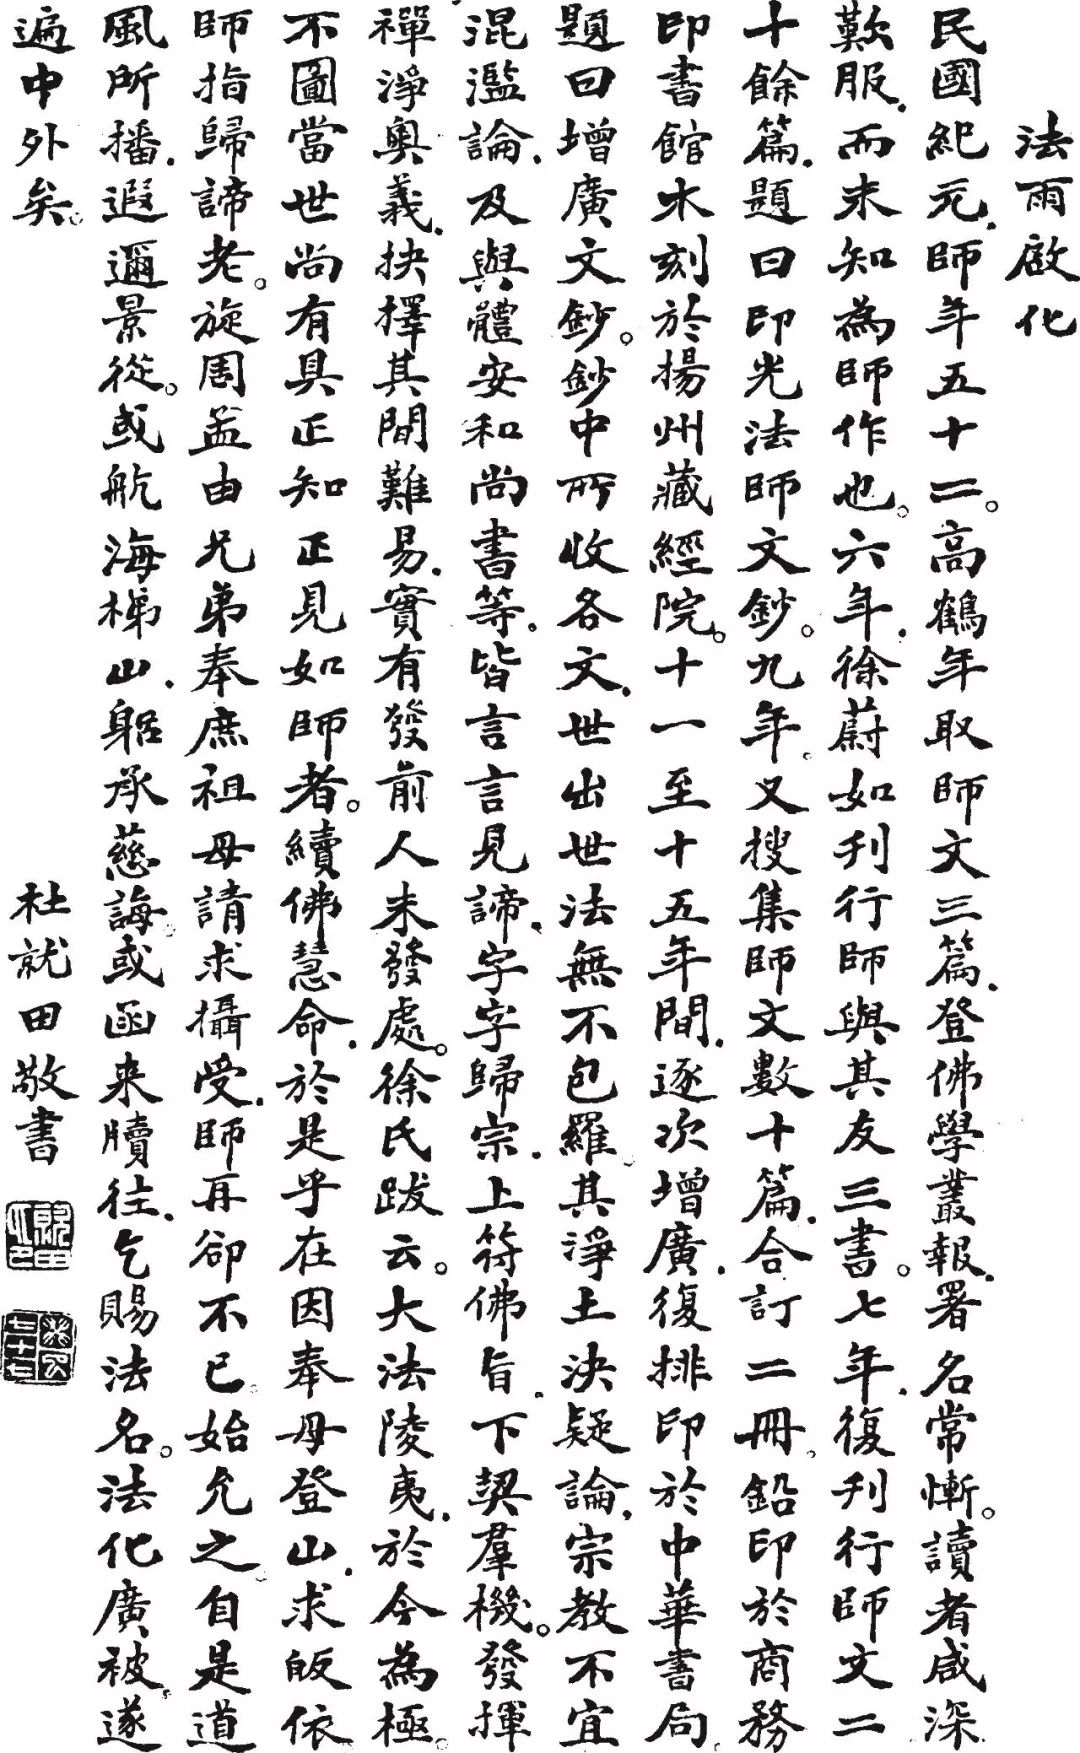 法雨啟化
民國紀元.師年五十二。高鶴年取師文三篇.登佛學叢報.署名常慚。讀者咸深
歎服.而未知為師作也。六年.徐蔚如刊行師與其友三書。七年.復刊行師文二
十餘篇.題曰印光法師文鈔。九年.又搜集師文數十篇.合訂二冊.鉛印於商務
印書館木刻於揚州藏經院。十一至十五年間.逐次增廣.復排印於中華書局.
題曰增廣文鈔。鈔中所收各文.世出世法無不包羅.其淨土決疑論.宗教不宜
混濫論.及與體安和尚書等.皆言言見諦.字字歸宗.上符佛旨.下契羣機。發揮
禪淨奧義.抉擇其間難易.實有發前人未發處。徐氏跋云。大法陵夷.於今為極。
不圖當世尚有具正知正見如師者。續佛慧命.於是乎在因奉母登山.求皈依
師指歸諦老。旋周孟由兄弟奉庶祖母請求攝受.師再卻不已.始允之.自是道
風所播.遐邇景從。或航海梯山.躬承慈誨.或函来牘往.乞賜法名。法化廣被.遂
遍中外矣。
杜就田敬書